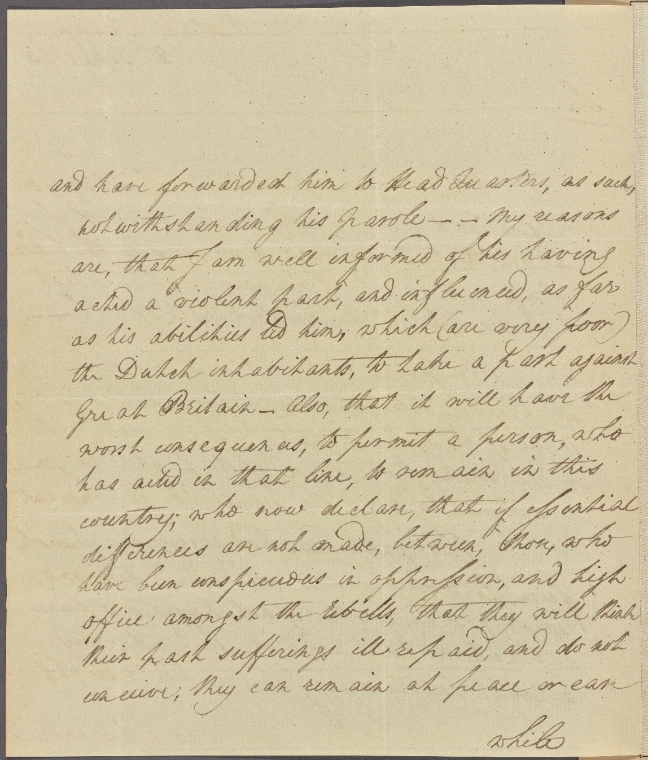 and have forwarded him to Head Quarters, as such,
notwithstanding his parole — — My reasons
are, that I am well informed of his having
acted a violent part, and influenced, as far
as his abilities led him, which (are very poor)
the Dutch inhabitants, to take a part against
Great Britain — Also, that it will have the
worst consequences, to permit a person, who
has acted in that line, to remain in this
country; who now declare, that if essential
differences are not made, between, those, who
have been conspicuous in oppression, and high
office amongst the Rebells, that they will think
their past sufferings ill repaid, and do not
conceive, they can remain at peace or ease
while